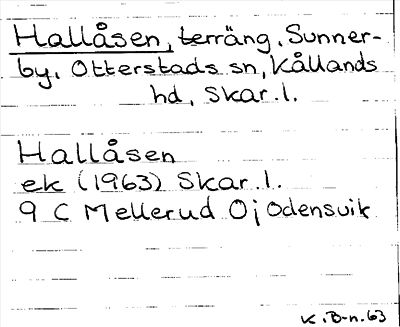 Hallåsen, terräng, Sunner-
by, Otterstads sn, Kållands
hd, Skar.l.
Hallåsen
ek (1963) Skar.l.
9 C Mellerud 0j Odensvik
K.B-n.63